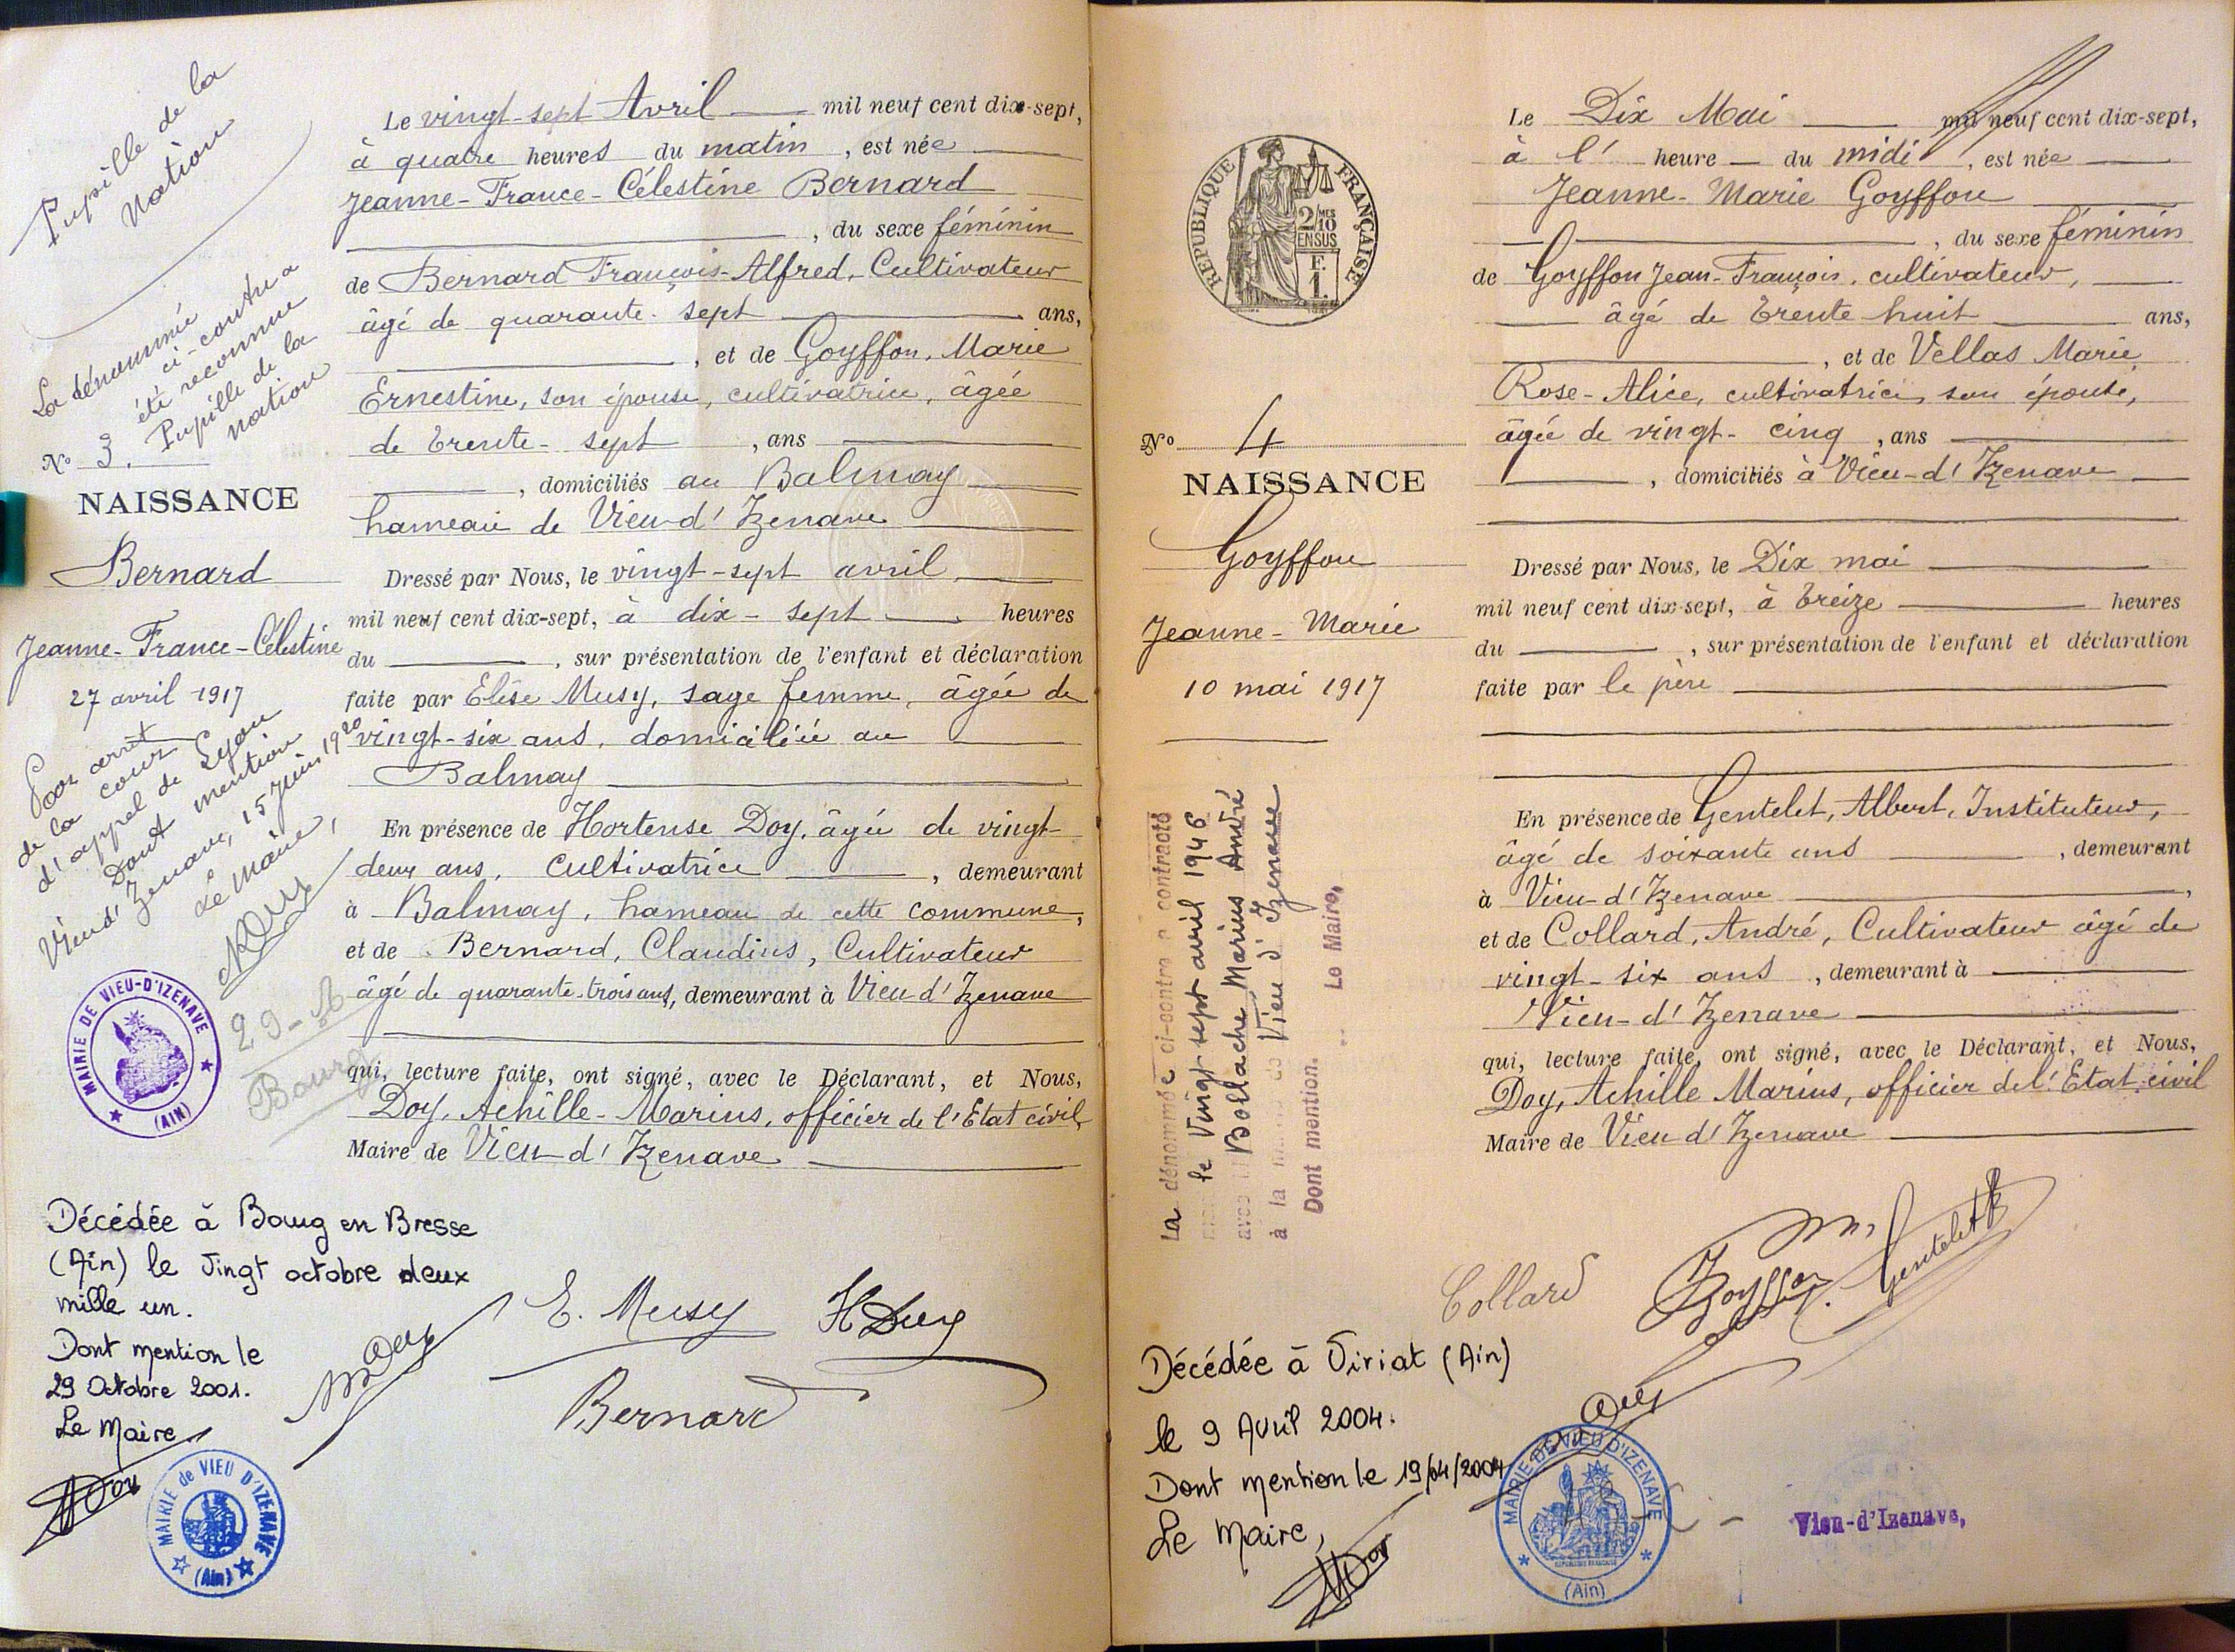 Pupille de la
Nation
La dénommée
ci-contre a
été reconnue
Pupille de la
nation
No 3.
NAISSANCE
Bernard
Jeanne-France-Célestine
27 avril 1917
Par arrêt
de la cour
d'appel de Lyon
Dont mention
Vieu d'Izenave, 15 Juin 1920
Le Maire,
MAIRIE DE VIEU-D'IZENAVE
(AIN)
Bourg
Le vingt-sept Avril mil neuf cent dix-sept,
à quatre heures du matin, est née
Jeanne-France-Célestine Bernard
, du sexe féminin
de Bernard François-Alfred, Cultivateur
âgé de quarante-sept ans,
, et de Goyffon, Marie
Ernestine, son épouse, cultivatrice, âgée
de trente-sept, ans
, domiciliés au Balmay
hameau de Vieu-d'Izenave
Dressé par Nous, le vingt-sept avril
mil neuf cent dix-sept, à dix-sept heures
du , sur présentation de l'enfant et déclaration
faite par Elise Musy, sage femme, âgée de
vingt-six ans, domiciliée au
Balmay
En présence de Hortense Doy, âgée de vingt-
deux ans, Cultivatrice, demeurant
à Balmay, hameau de cette commune,
et de Bernard, Claudius, Cultivateur
âgé de quarante-trois ans, demeurant à Vieu d'Izenave
qui, lecture faite, ont signé, avec le Déclarant, et Nous,
Doy, Achille-Marius, officier de l'Etat civil
Maire de Vieu-d'Izenave
Décédée à Bourg en Bresse
(Ain) le Vingt octobre deux
mille un.
Dont mention le
29 Octobre 2001.
Le Maire
MAIRIE de VIEU D'IZENAVE
(Ain)
E. Musy
H Doy
Bernard
REPUBLIQUE FRANÇAISE
2/10 MES
EN SUS
F.
1.
No 4
NAISSANCE
Goyffon
Jeanne-Marie
10 mai 1917
La dénommée ci-contre a contracté
le Vingt sept avril 1946
avec Bollache Marius André
à la mairie de Vieu d'Izenave
Dont mention. Le Maire,
Le Dix Mai mil neuf cent dix-sept,
à l' heure du midi, est née
Jeanne-Marie Goyffon
, du sexe féminin
de Goyffon Jean-François, cultivateur,
âgé de trente huit ans,
, et de Vellas Marie
Rose-Alice, cultivatrice, son épouse,
âgée de vingt-cinq, ans
, domiciliés à Vieu-d'Izenave
Dressé par Nous, le Dix mai
mil neuf cent dix-sept, à treize heures
du , sur présentation de l'enfant et déclaration
faite par le père
En présence de Gentelet, Albert, Instituteur,
âgé de soixante ans, demeurant
à Vieu-d'Izenave,
et de Collard, André, Cultivateur âgé de
vingt-six ans, demeurant à
Vieu-d'Izenave
qui, lecture faite, ont signé, avec le Déclarant, et Nous,
Doy, Achille Marius, officier de l'Etat civil
Maire de Vieu d'Izenave
Collard
Goyffon
Gentelet
Décédée à Viriat (Ain)
le 9 Avril 2004.
Dont mention le 19/04/2004
Le Maire,
MAIRIE DE VIEU D'IZENAVE
(Ain)
Vieu-d'Izenave,